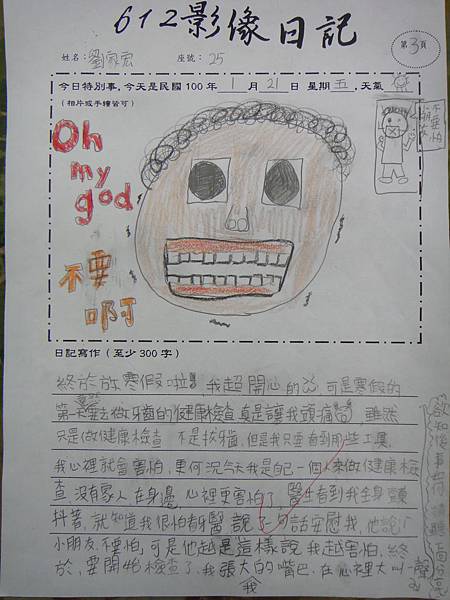 612影像日記
第3頁
姓名：劉家宏 座號：25
今日特別事，今天是民國100年1月21日 星期五，天氣
（相片或手繪皆可）
Oh
my
god
不要
啊
不要怕
日記寫作（至少300字）
終於放寒假啦！我超開心的 可是寒假的
第一天要去做牙齒的健康檢查真是讓我頭痛 雖然
只是做健康檢查 不是拔牙齒，但是我只要看到那些工具，
我心裡就會害怕，更何況今天我是自己一個人來做健康檢
查，沒有家人在身邊，心裡更害怕了，醫生看到我全身顫
抖著，就知道我很怕看牙醫，說了一句話安慰我，他說：
小朋友，不要怕，可是他越是這樣說我越害怕，終
於，要開始檢查了，我張大的嘴巴，在心裡大叫一聲
我
欲知後事如何 請聽 面分享